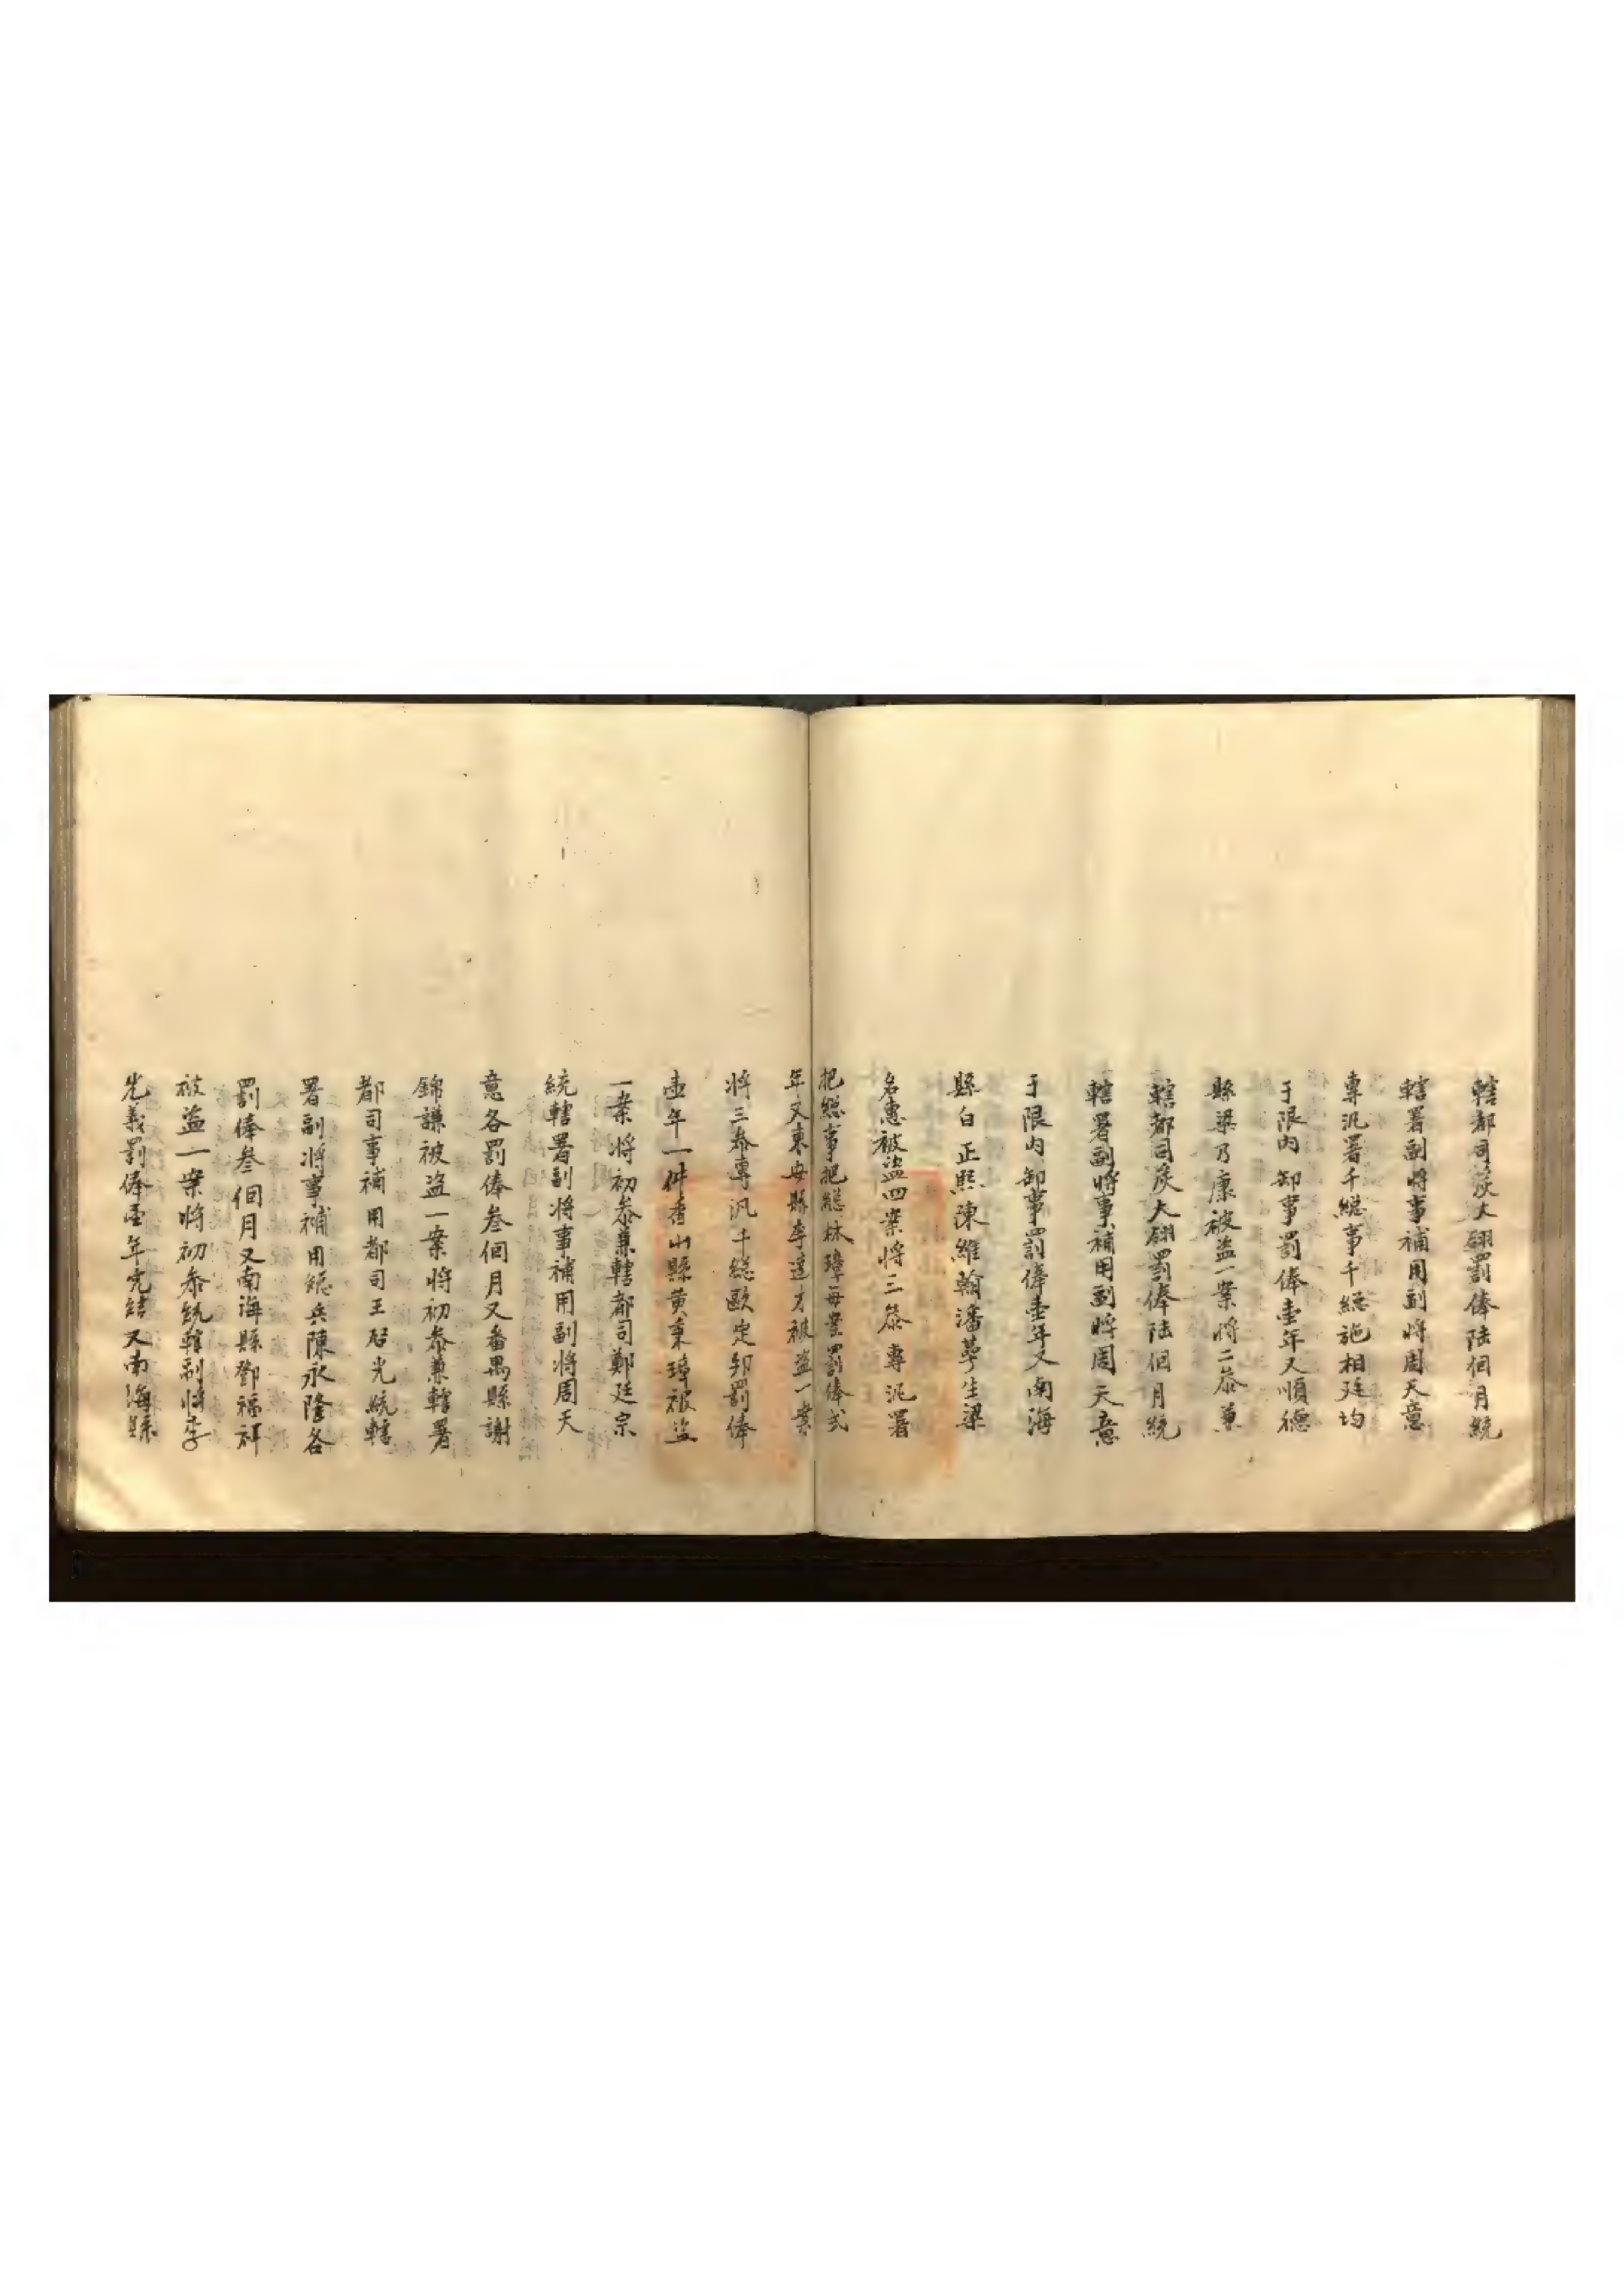 轄都司莫大翃罰俸陸個月統
轄署副將事補用副將周天意
專汛署千緫事千緫施相廷均
于限內卸事罰俸壹年又順德
縣梁乃康被盜一案將二叅兼
轄都司莫大翃罰俸陸個月統
轄署副將事補用副將周天意
于限內卸事罰俸壹年又南海
縣白正熙陳維翰潘夢生梁
名惠被盜四案將三叅專汛署
把緫事把緫林璋每案罰俸弍
年又東安縣李達才被盜一案
將三叅專汛千緫歐定邦罰俸
壹年一件香山縣黄秉璋被盜
一案將初叅兼轄都司鄭廷宗
統轄署副將事補用副將周天
意各罰俸叁個月又番禺縣謝
錦謙被盜一案將初叅兼轄署
都司事補用都司王啓光統轄
署副將事補用緫兵陳永隆各
罰俸叁個月又南海縣鄧福祥
被盜一案將初叅統轄副將李
先義罰俸壹年完結又南海縣